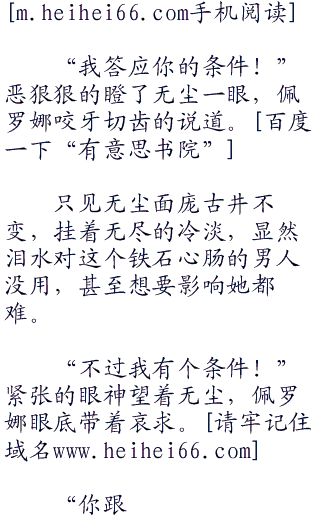 [m.heihei66.com手机阅读]
“我答应你的条件！”
恶狠狠的瞪了无尘一眼，佩
罗娜咬牙切齿的说道。[百度
一下“有意思书院”]
只见无尘面庞古井不
变，挂着无尽的冷淡，显然
泪水对这个铁石心肠的男人
没用，甚至想要影响她都
难。
“不过我有个条件！”
紧张的眼神望着无尘，佩罗
娜眼底带着哀求。[请牢记住
域名www.heihei66.com]
“你跟